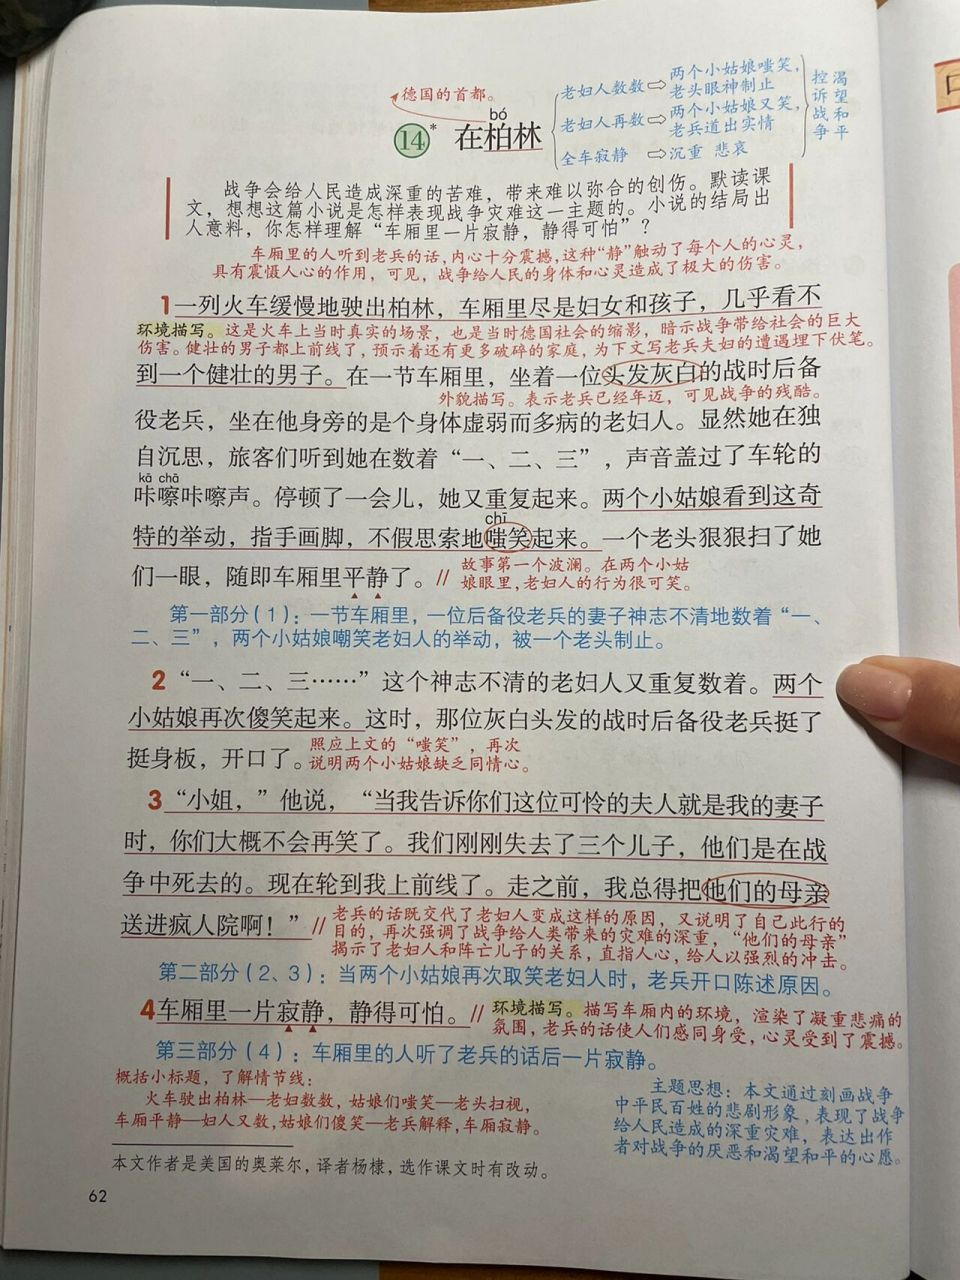 德国的首都。
bó
14* 在柏林
老妇人数数⇨两个小姑娘嗤笑，老头眼神制止
老妇人再数⇨两个小姑娘又笑，老兵道出实情
全车寂静 ⇨沉重 悲哀
控诉战争
渴望和平
战争会给人民造成深重的苦难，带来难以弥合的创伤。默读课
文，想想这篇小说是怎样表现战争灾难这一主题的。小说的结局出
人意料，你怎样理解“车厢里一片寂静，静得可怕”？
车厢里的人听到老兵的话，内心十分震撼，这种“静”触动了每个人的心灵，
具有震慑人心的作用，可见，战争给人民的身体和心灵造成了极大的伤害。
1一列火车缓慢地驶出柏林，车厢里尽是妇女和孩子，几乎看不
环境描写。这是火车上当时真实的场景，也是当时德国社会的缩影，暗示战争带给社会的巨大
伤害。健壮的男子都上前线了，预示着还有更多破碎的家庭，为下文写老兵夫妇的遭遇埋下伏笔。
到一个健壮的男子。在一节车厢里，坐着一位头发灰白的战时后备
外貌描写。表示老兵已经年迈，可见战争的残酷。
役老兵，坐在他身旁的是个身体虚弱而多病的老妇人。显然她在独
自沉思，旅客们听到她在数着“一、二、三”，声音盖过了车轮的
kā chā
咔嚓咔嚓声。停顿了一会儿，她又重复起来。两个小姑娘看到这奇
chī
特的举动，指手画脚，不假思索地嗤笑起来。一个老头狠狠扫了她
们一眼，随即车厢里平静了。// 故事第一个波澜。在两个小姑
娘眼里，老妇人的行为很可笑。
第一部分（1）：一节车厢里，一位后备役老兵的妻子神志不清地数着“一、
二、三”，两个小姑娘嘲笑老妇人的举动，被一个老头制止。
2“一、二、三……”这个神志不清的老妇人又重复数着。两个
小姑娘再次傻笑起来。这时，那位灰白头发的战时后备役老兵挺了
挺身板，开口了。照应上文的“嗤笑”，再次
说明两个小姑娘缺乏同情心。
3“小姐，”他说，“当我告诉你们这位可怜的夫人就是我的妻子
时，你们大概不会再笑了。我们刚刚失去了三个儿子，他们是在战
争中死去的。现在轮到我上前线了。走之前，我总得把他们的母亲
送进疯人院啊！”// 老兵的话既交代了老妇人变成这样的原因，又说明了自己此行的
目的，再次强调了战争给人类带来的灾难的深重，“他们的母亲”
揭示了老妇人和阵亡儿子的关系，直指人心，给人以强烈的冲击。
第二部分（2、3）：当两个小姑娘再次取笑老妇人时，老兵开口陈述原因。
4车厢里一片寂静，静得可怕。// 环境描写。描写车厢内的环境，渲染了凝重悲痛的
氛围，老兵的话使人们感同身受，心灵受到了震撼。
第三部分（4）：车厢里的人听了老兵的话后一片寂静。
概括小标题，了解情节线：
火车驶出柏林—老妇数数，姑娘们嗤笑—老头扫视，
车厢平静—妇人又数，姑娘们傻笑—老兵解释，车厢寂静。
主题思想：本文通过刻画战争
中平民百姓的悲剧形象，表现了战争
给人民造成的深重灾难，表达出作
者对战争的厌恶和渴望和平的心愿。
本文作者是美国的奥莱尔，译者杨棣，选作课文时有改动。
62